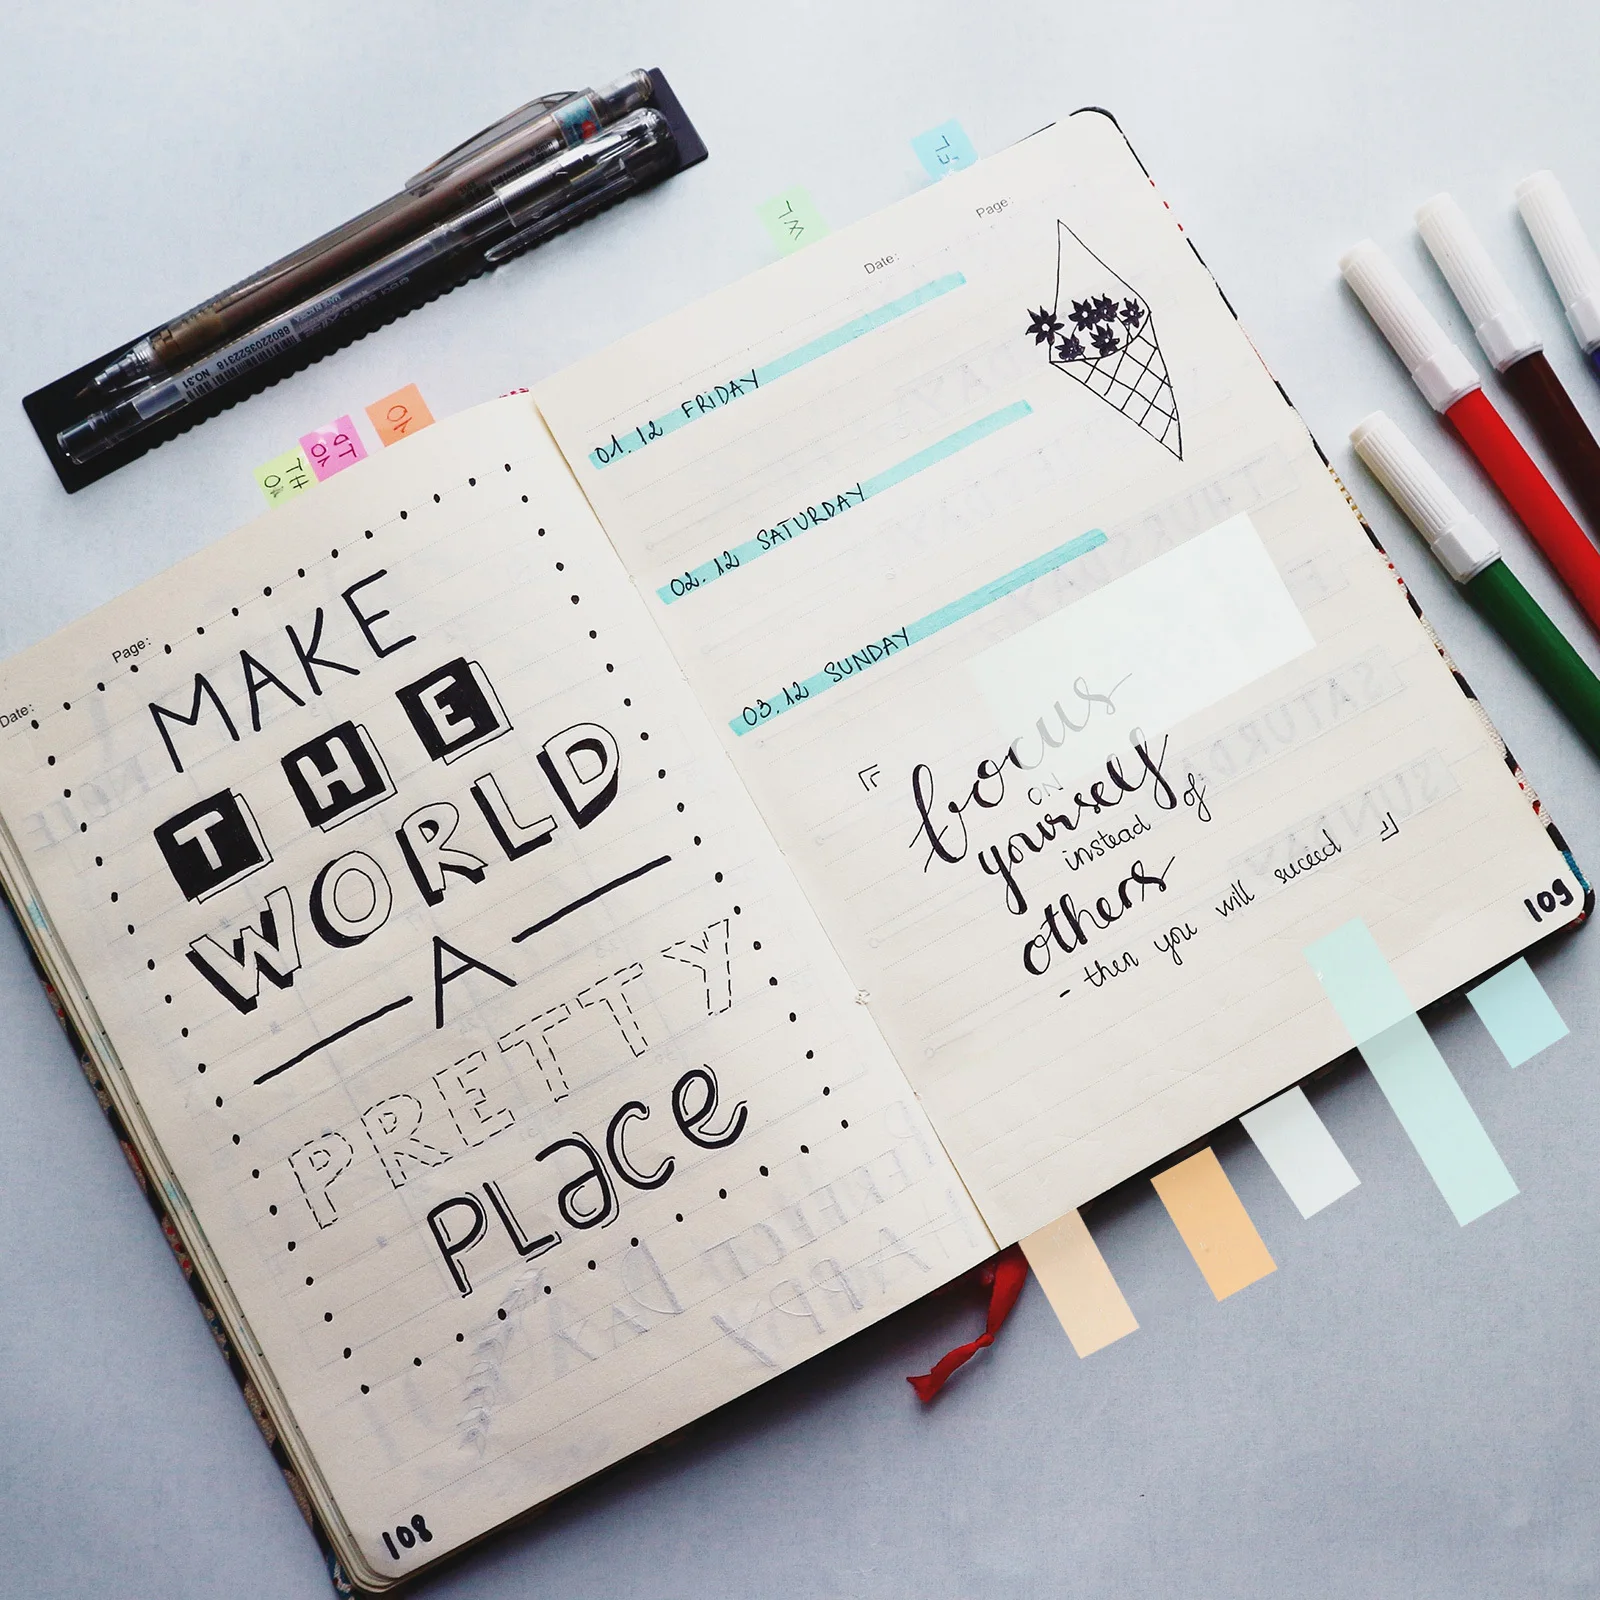 Date:
Page:
MAKE
THE
WORLD
A
PRETTY
PLace
108
Date:
Page:
01.12 FRIDAY
02.12 SATURDAY
03.12 SUNDAY
focus
ON
yourself
instead of
others
- then you will suceed
109
8802203522318 NO.31